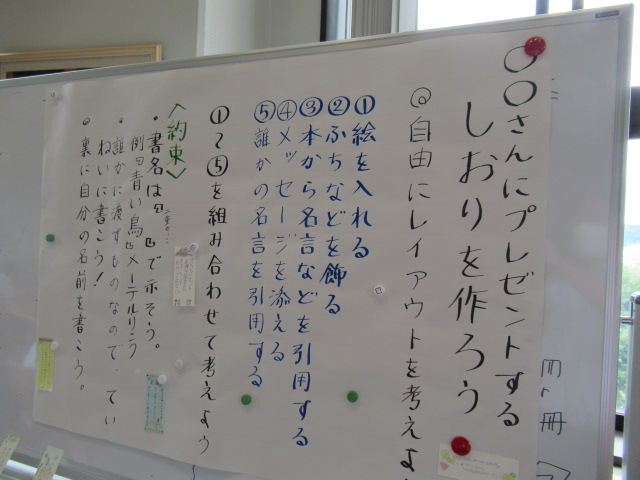 ○○さんにプレゼントする
しおりを作ろう
◎自由にレイアウトを考えよ
①絵を入れる
②ふちなどを飾る
③本から名言などを引用する
④メッセージを添える
⑤誰かの名言を引用する
①〜⑤を組み合わせて考えよう
〈約束〉
・書名は『 』で示そう。
例『青い鳥』メーテルリンク
・誰かに渡すものなので、てい
ねいに書こう!
◎裏に自分の名前を書こう。